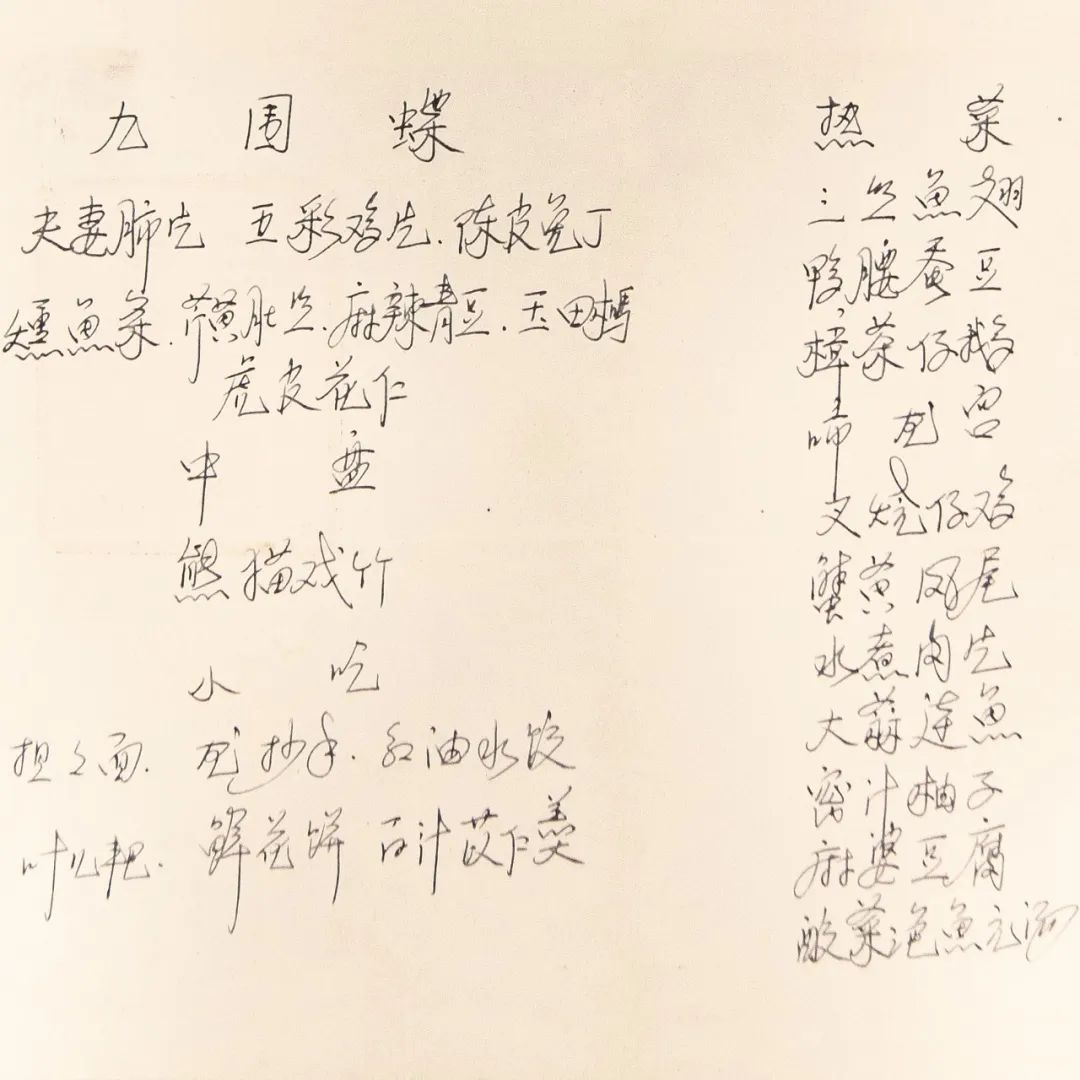 九 围 蝶
夫妻肺片 五彩鸡片.陈皮兔丁
鱼条.芥黄肚丝.麻辣青豆.玉田
虎皮花仁
中 盘
熊猫戏竹
小 吃
担々面. 龙抄手. 红油水饺
叶儿粑. 鲜花饼 百汁苡仁羹
热 菜
三丝鱼翅
鸭腰蚕豆
樟茶仔鹅
龙宫
叉烧仔鸡
蟹黄凤尾
水煮肉片
大蒜连鱼
密汁柚子
麻婆豆腐
酸菜鱼元汤